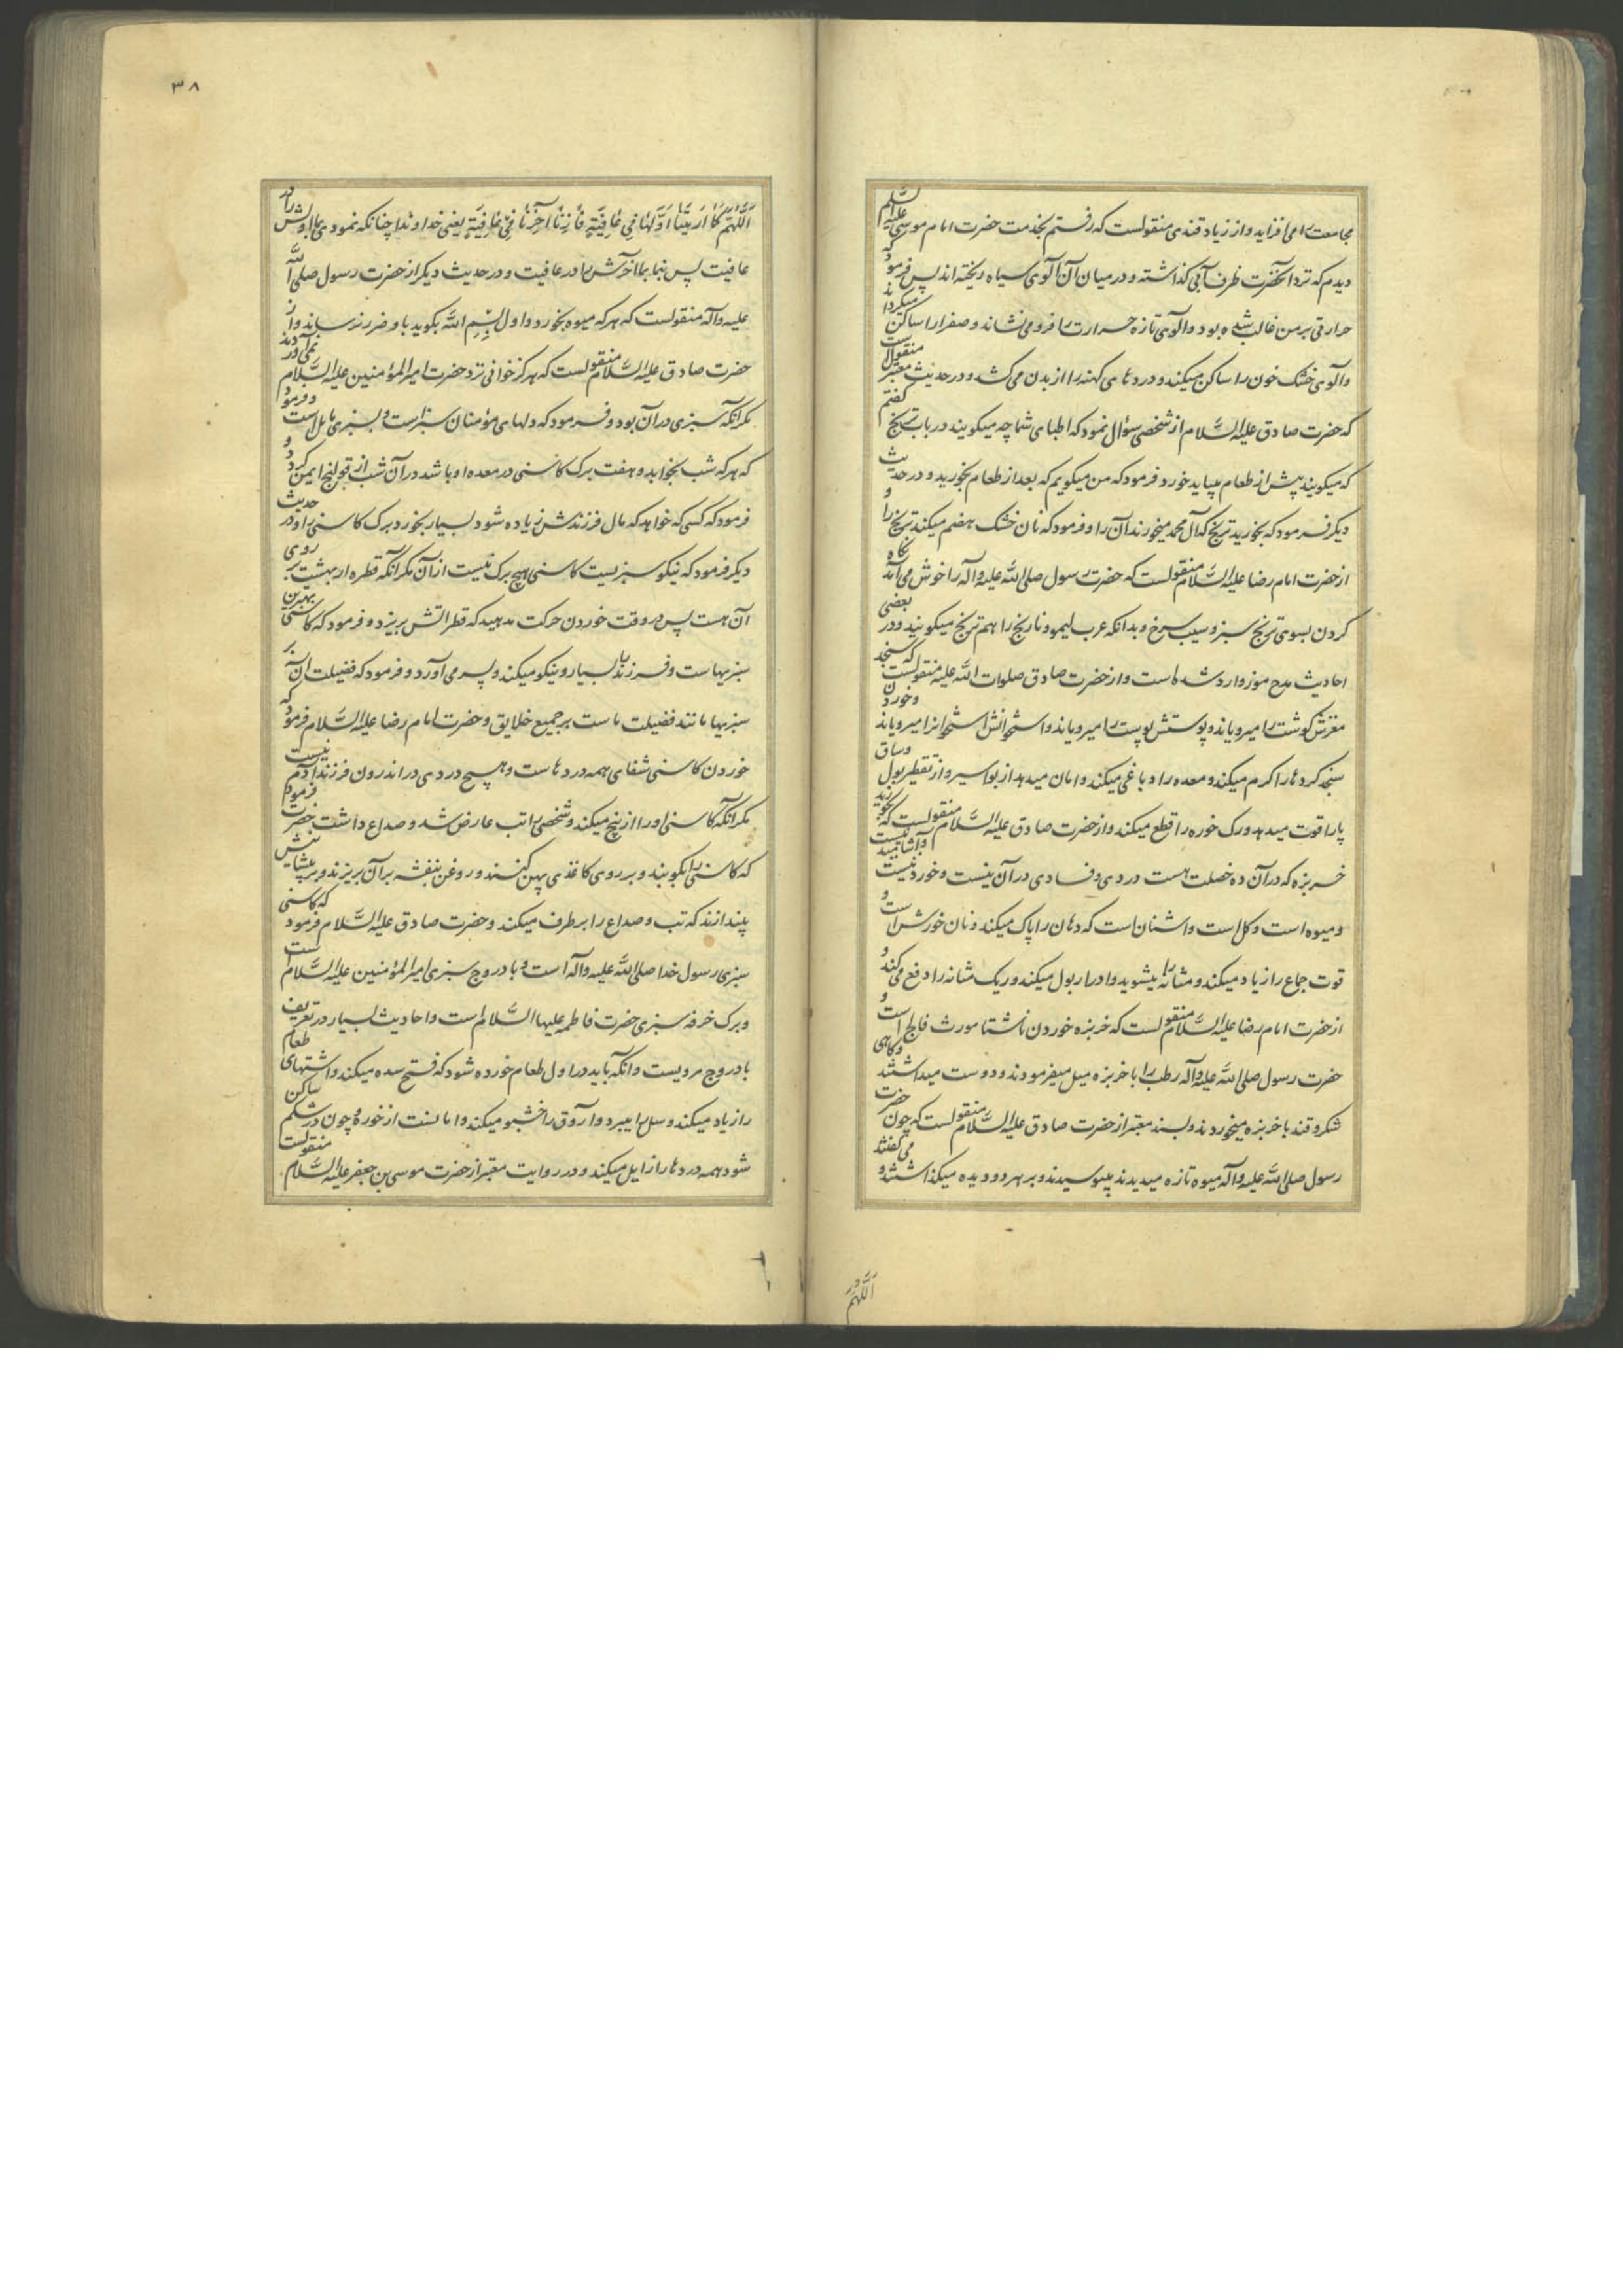 مجامعت را می افزاید و از زیاد قندی منقولست که رفتم بخدمت حضرت امام موسی علیه السّلم
دیدم که نزد آنحضرت ظرف آبی گذاشته و در میان آن آلوی سیاه ریخته اند پس فرمود که
حرارتی بر من غالب شده بود و آلوی تازه حرارت را فرو می نشاند و صفرا را ساکن میکرداند
و آلوی خشک خون را ساکن میکند و دردهای کهنه را از بدن می کشد و در حدیث معتبر منقولست
که حضرت صادق علیه السَّلام از شخصی سؤال نمود که اطبای شما چه میکویند در باب ترنج گفتم
که میکویند پیش از طعام میباید خورد فرمود که من میکویم که بعد از طعام بخورید و در حدیث
دیگر فرمود که بخورید ترنج که آل محمد میخورند آن را و فرمود که نان خشک هضم میکند ترنج را و
از حضرت امام رضا علیه السَّلام منقولست که حضرت رسول صلی الله علیه وآله را خوش می آمد نگاه
کردن بسوی ترنج سبز و سیب سرخ و بدانکه عرب لیمو و نارنج را هم ترنج میکویند و در بعضی
احادیث مدح موز وارد شده است و از حضرت صادق صلوات الله علیه منقولست که سنجد
مغزش کوشت را میرویاند و پوستش پوست را میرویاند و استخوانش استخوان را میرویاند و خوردن
سنجد کرده ها را کرم میکند و معده را دباغی میکند و امان میدهد از بواسیر و از تقطیر بول و ساق
پا را قوت میدهد و رک خوره را قطع میکند و از حضرت صادق علیه السَّلام منقولست که بخورید
خربزه که در آن ده خصلت هست دردی و فسادی در آن نیست و خوردنیست و آشامیدنیست
و میوه است و کل است و اشنان است که دهان را پاک میکند و نان خورش است و
قوت جماع را زیاد میکند و مثانه را میشوید و ادرار بول میکند و ریک مثانه را دفع می کند و
از حضرت امام رضا علیه السَّلام منقولست که خربزه خوردن ناشتا مورث فالج است و
حضرت رسول صلی الله علیه وآله رطب را با خربزه میل میفرمودند و دوست میداشتند و کاهی
شکر و قند با خربزه میخوردند و بسند معتبر از حضرت صادق علیه السَّلام منقولست که چون حضرت
رسول صلی الله علیه وآله میوه تازه میدیدند میبوسیدند و بر هر دو دیده میکذاشتند و می گفتند
اَللّٰهُمَّ
٣٨
اَللّٰهُمَّ کَمٰا اَرَیْتَنٰا اَوَّلَهٰا فِی عٰافِیَةٍ فَاَرِنٰا آخِرَهٰا فِی عٰافِیَةٍ یعنی خداوندا چنانکه نمودی بما اولش را در
عافیت پس بنما بما آخرش را در عافیت و در حدیث دیکر از حضرت رسول صلی الله
علیه وآله منقولست که هر که میوه بخورد و اول بِسْمِ الله بکوید باو ضرر نرساند و از
حضرت صادق علیه السَّلام منقولست که هر کز خوانی نزد حضرت امیر المؤمنین علیه السَّلام نمی آوردند
مکر آنکه سبزی در آن بود و فرمود که دلهای مؤمنان سبز است و بسبزی مایل است و فرمود
که هر که شب بخوابد و هفت برک کاسنی در معده او باشد در آن شب از قولنج ایمن کردد و
فرمود که کسی که خواهد که مال و فرزندش زیاده شود بسیار بخورد برک کاسنی را و در حدیث
دیکر فرمود که نیکو سبزیست کاسنی هیچ برک نیست از آن مکر آنکه قطره از بهشت بر روی
آن هست پس در وقت خوردن حرکت مدهید که قطراتش بریزد و فرمود که کاسنی بهترین
سبزیهاست و فرزند را بسیار و نیکو میکند و پسر می آورد و فرمود که فضیلت آن بر
سبزیها مانند فضیلت ماست بر جمیع خلایق و حضرت امام رضا علیه السَّلام فرمود که
خوردن کاسنی شفای همه دردهاست و هیچ دردی در اندرون فرزند آدم نیست
مکر آنکه کاسنی او را از بیخ میکند و شخصی را تب عارض شد و صداع داشت حضرت فرمود
که کاسنی را بکوبند و بر روی کاغذی پهن کنند و روغن بنفشه بر آن بریزند و بر پیشانیش
بیندازند که تب و صداع را برطرف میکند و حضرت صادق علیه السَّلام فرمود که کاسنی
سبزی رسول خدا صلی الله علیه وآله است و بادروج سبزی امیر المؤمنین علیه السَّلام است
و برک خرفه سبزی حضرت فاطمه علیها السَّلام است و احادیث بسیار در تعریف
بادروج مرویست و آنکه باید در اول طعام خورده شود که فتح سده میکند و اشتهای طعام
را زیاد میکند و سل را میبرد و آروق را خشبو میکند و امانست از خوره و چون در شکم ساکن
شود همه دردها را زایل میکند و در روایت معتبر از حضرت موسی بن جعفر علیه السَّلام منقولست